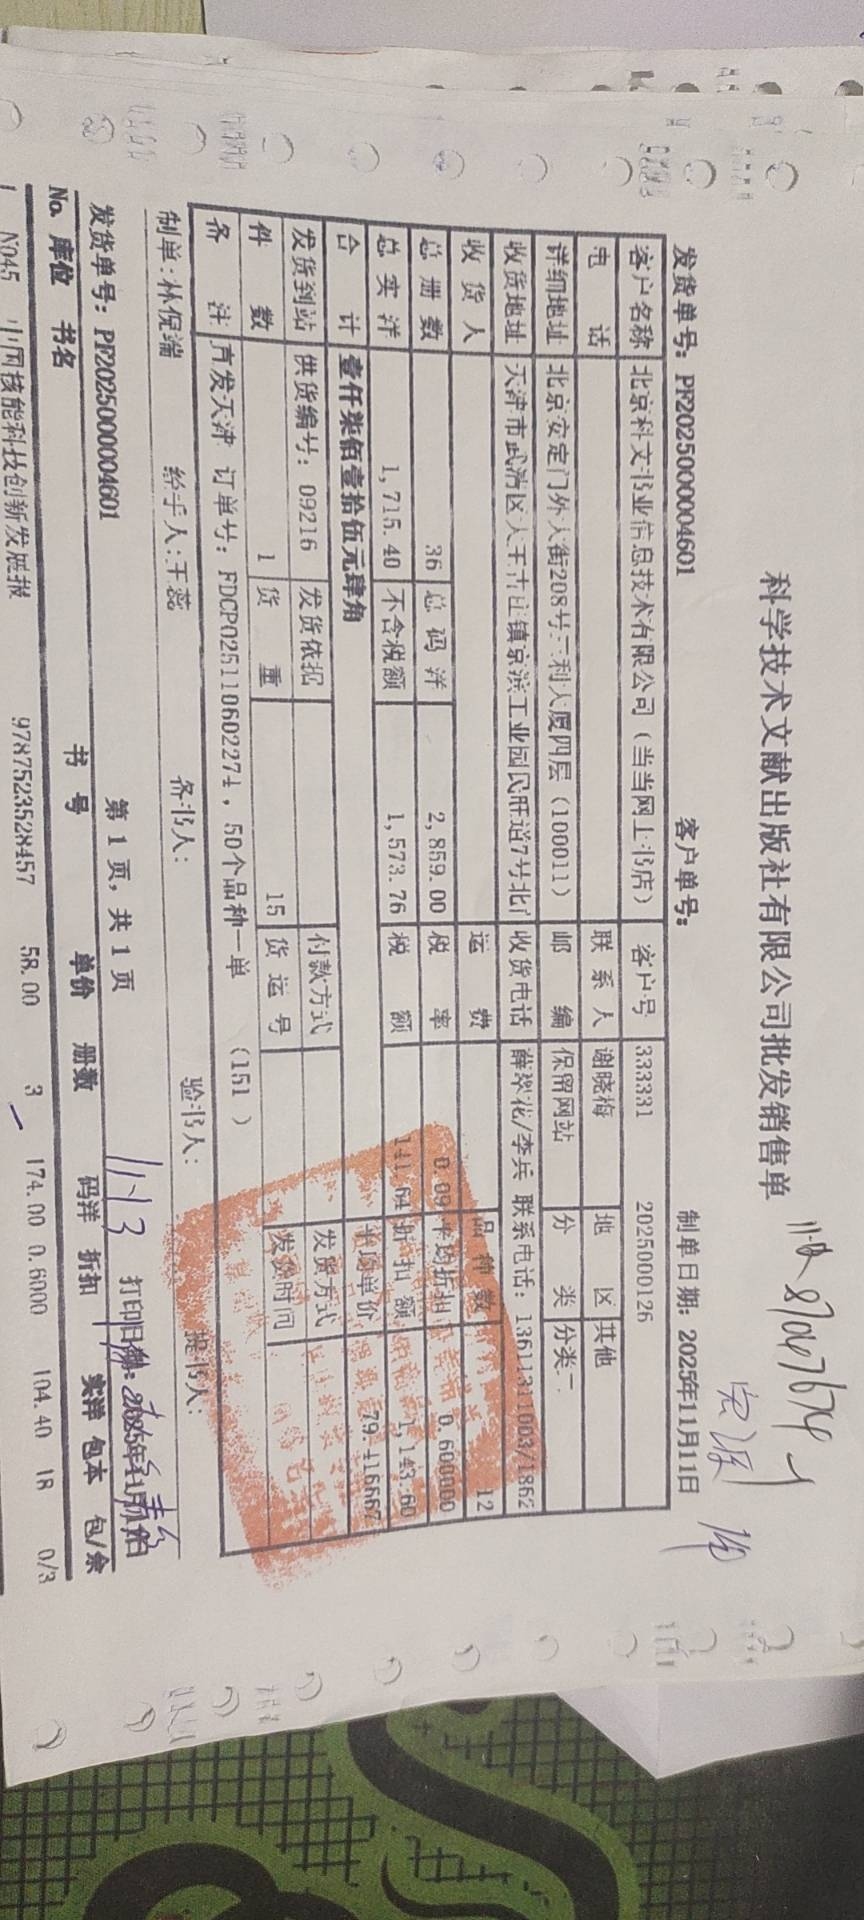 科学技术文献出版社有限公司批发销售单
发货单号: PF2025000004601 客户单号: 制单日期: 2025年11月11日
客户名称 北京科文书业信息技术有限公司（当当网上书店） 客户号 333331 2025000126
电话 联系人 谢晓梅 地区 其他
详细地址 北京安定门外大街208号三利大厦四层（100011） 邮编 保留网站 分类 分类二
收货地址 天津市武清区大王古庄镇京滨工业园民旺道7号北门 收货电话 薛翠花/李兵 联系电话: 13611311003/1862
收货人 运费 品种数 12
总册数 36 总码洋 2,859.00 税率 0.09 平均折扣 0.600000
总实洋 1,715.40 不含税额 1,573.76 税额 141.64 折扣额 1,143.60
合计 壹仟柒佰壹拾伍元肆角 平均单价 79.416667
发货到站 供货编号: 09216 发货依据 付款方式 发货方式
件数 1 货重 15 货运号 发货时间
备注 直发天津 订单号: FDCP025110602274, 50个品种一单 (151 )
制单:林倪端 经手人:王蕊 备书人: 验书人: 提书人:
11.13
发货单号: PF2025000004601 第 1 页, 共 1 页 打印日期: 2025年11月11日
No. 库位 书名 书号 单价 册数 码洋 折扣 实洋 包本 包/余
1 N045 中国核能科技创新发展报 9787523528457 58.00 3 174.00 0.6000 104.40 18 0/3